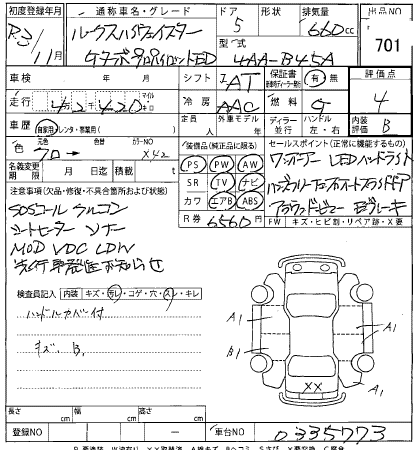 初度登録年月 通称車名・グレード ドア 形状 排気量 出品NO
R3/11月 ルークスハイウェイスター 5 660cc 701
型式
4AA-B45A
車検 年 月 シフト IAT 保証書 有 無 評価点
走行 42420 マイル キロ 冷房 AAC 燃料 G 4
定員 人 外車モデル 年 ディーラー 並行 ハンドル 左・右 内装 B
車歴 自家用 レンタ・事業用
色 クロ → 色替 カラーNO X42
装備品(純正品に限る) セールスポイント(正常に機能するもの)
PS PW AW ワンオーナー LEDヘッドライト
名義変更期限 月 日迄 積載 t
SR TV ナビ
注意事項(欠品・修復・不具合箇所および状態)
カワ エアB ABS アラウンドビュー Eブレーキ
SOSコール アルコン
R券 6560円 FW キズ・ヒビ割・リペア跡・X要
シートヒーター ソナー
MOD VDC LDW
先行車発進お知らせ
検査員記入 内装 キズ・汚レ・コゲ・穴・スレ・キレ
ハンドルカバー付
キズ、B
A1 A1
B1
XX A1
長さ cm 幅 cm 高さ cm
登録NO 車台NO 0335773